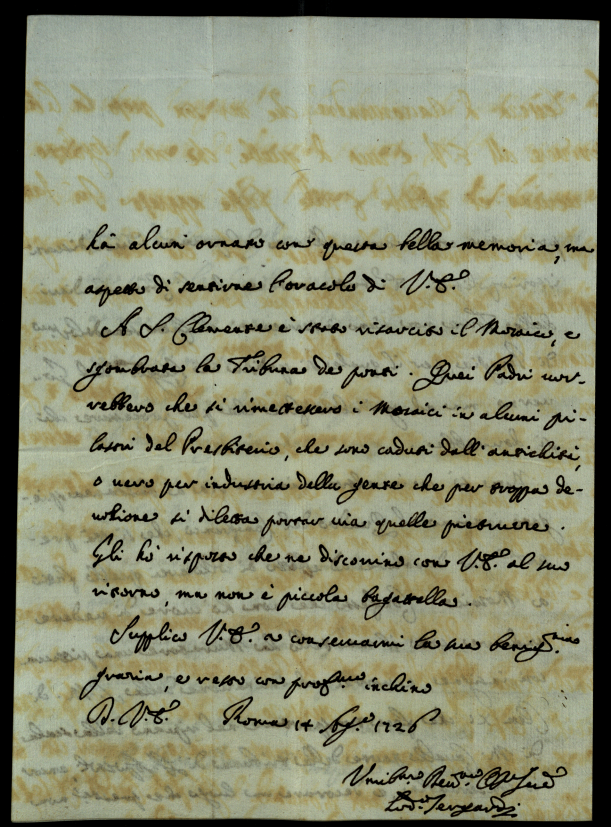 hà alcuni ornato con questa bella memoria, ma
aspetto di sentirne l'oracolo di V.S.
A S. Clemente è stato risarcito il Mosaico, e
sgombrata la Tribuna de ponti. Quei Padri vor-
rebbero che si rimettessero i Mosaici in alcuni pi-
lastri del Presbiterio, che sono caduti dall'antichità,
o vero per industria della gente che per troppa de-
votione si diletta portar via quelle pietruccie.
Gli hò risposto che ne discorrino con V.S. al suo
ritorno, ma non è piccola bagattella.
Supplico V.S. a conservarmi la sua
grazia, e resto con prof.mo inchino
D. V.S. Roma 14 1726
Umil.mo
Lod.o Sergardi